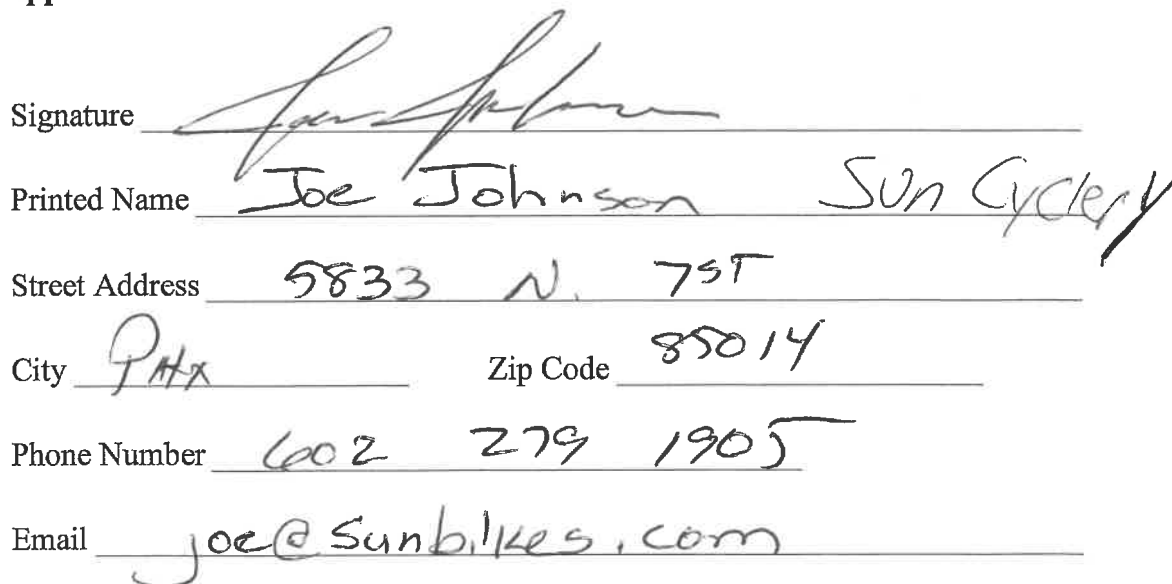 Signature
Printed Name Joe Johnson Sun Cyclery
Street Address 5833 N. 7ST
City PHX Zip Code 85014
Phone Number 602 279 1905
Email joe@sunbikes.com